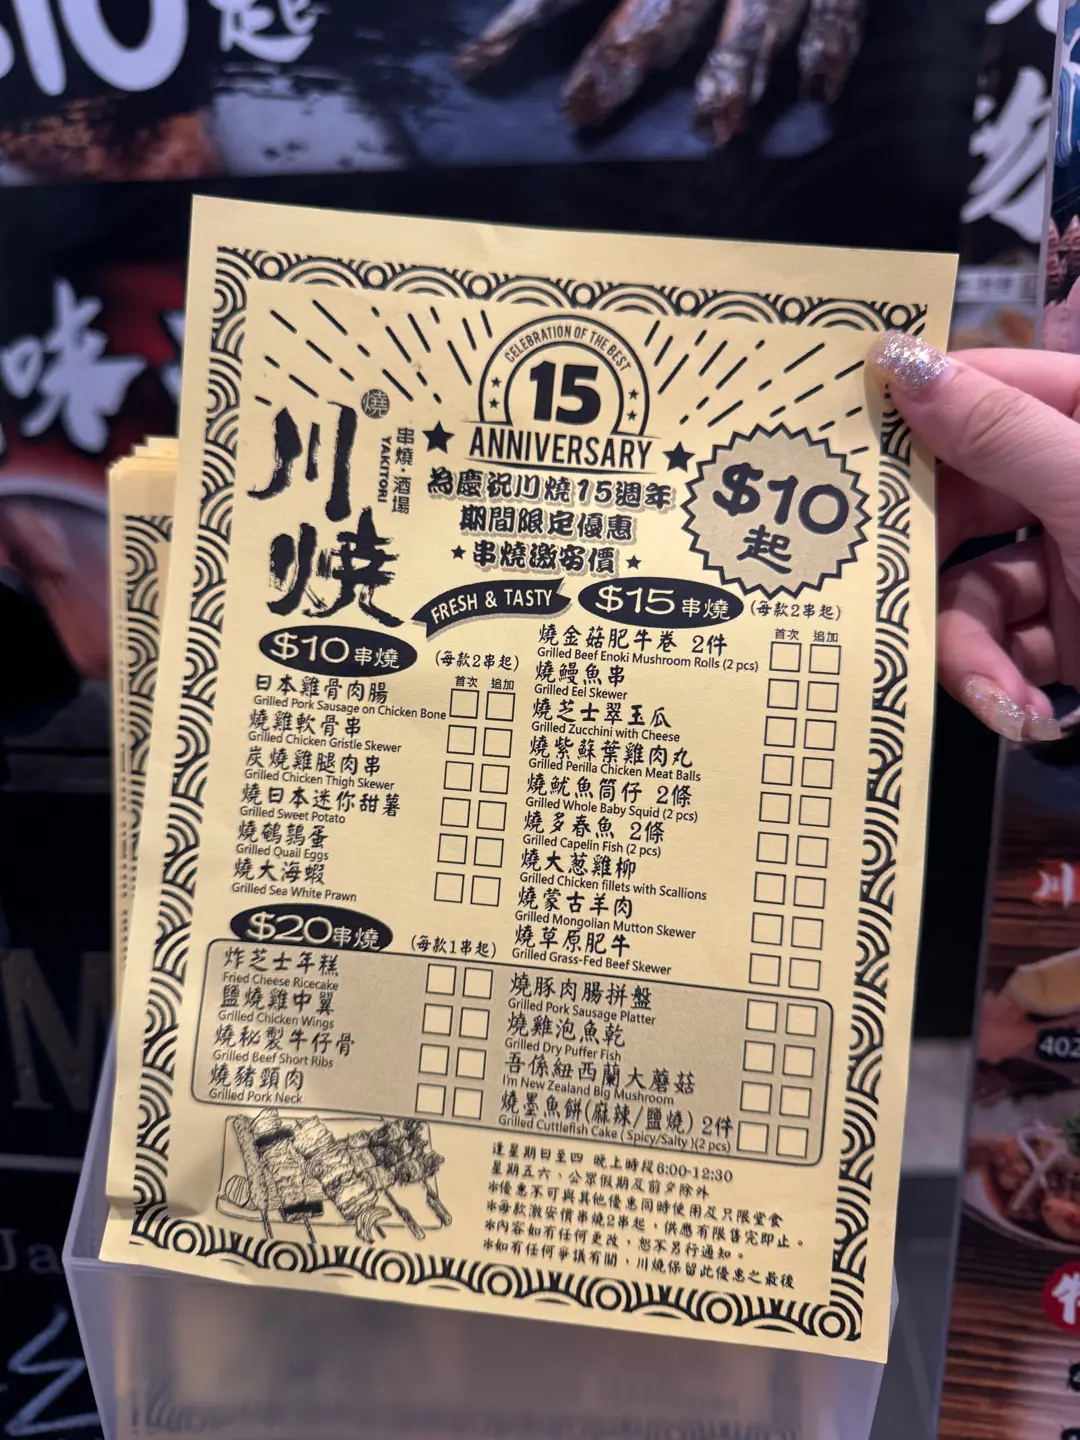 $10起
CELEBRATION OF THE BEST
15
ANNIVERSARY
川燒
燒
串燒・酒場
YAKITORI
為慶祝川燒15週年
期間限定優惠
串燒激安價
$10
起
FRESH & TASTY
$10串燒 (每款2串起)
首次 追加
日本雞骨肉腸
Grilled Pork Sausage on Chicken Bone
燒雞軟骨串
Grilled Chicken Gristle Skewer
炭燒雞腿肉串
Grilled Chicken Thigh Skewer
燒日本迷你甜薯
Grilled Sweet Potato
燒鵪鶉蛋
Grilled Quail Eggs
燒大海蝦
Grilled Sea White Prawn
$15串燒 (每款2串起)
首次 追加
燒金菇肥牛卷 2件
Grilled Beef Enoki Mushroom Rolls (2 pcs)
燒鰻魚串
Grilled Eel Skewer
燒芝士翠玉瓜
Grilled Zucchini with Cheese
燒紫蘇葉雞肉丸
Grilled Perilla Chicken Meat Balls
燒魷魚筒仔 2條
Grilled Whole Baby Squid (2 pcs)
燒多春魚 2條
Grilled Capelin Fish (2 pcs)
燒大葱雞柳
Grilled Chicken fillets with Scallions
燒蒙古羊肉
Grilled Mongolian Mutton Skewer
燒草原肥牛
Grilled Grass-Fed Beef Skewer
$20串燒 (每款1串起)
炸芝士年糕
Fried Cheese Ricecake
鹽燒雞中翼
Grilled Chicken Wings
燒秘製牛仔骨
Grilled Beef Short Ribs
燒豬頸肉
Grilled Pork Neck
燒豚肉腸拼盤
Grilled Pork Sausage Platter
燒雞泡魚乾
Grilled Dry Puffer Fish
吾係紐西蘭大蘑菇
I'm New Zealand Big Mushroom
燒墨魚餅(麻辣/鹽燒) 2件
Grilled Cuttlefish Cake ( Spicy/Salty )(2 pcs)
逢星期日至四 晚上時段6:00-12:30
星期五六，公眾假期及前夕除外
*優惠不可與其他優惠同時使用及只限堂食
*每款激安價串燒2串起，供應有限售完即止。
*內容如有任何更改，恕不另行通知。
*如有任何爭議有關，川燒保留此優惠之最後
402